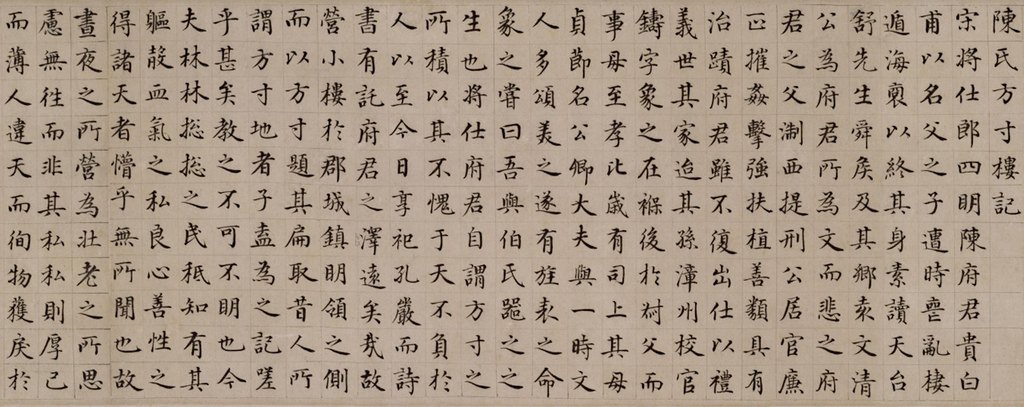 陳氏方寸樓記
宋將仕郎四明陳府君貴白
甫以名父之子遭時喪亂棲
遁海以終其身素讀天台
舒先生舜侯及其鄉袁文清
公為府君所為文而悲之府
君之父淛西提刑公居官廉
正摧姦擊強扶植善類具有
治蹟府君雖不復出仕以禮
義世其家迨其孫漳州校官
鑄字象之在褓後於父而
事母至孝比歲有司上其母
貞節名公卿大夫與一時文
人多頌美之遂有旌表之命
象之嘗曰吾與伯氏噐之之
生也將仕府君自謂方寸之
所積以其不愧于天不負於
人以至今日享祀孔嚴而詩
書有託府君之澤遠矣哉故
營小樓於郡城鎮明領之側
而以方寸題其扁取昔人所
謂方寸地者子盍為之記嗟
乎甚矣教之不可不明也今
夫林林揔揔之民秖知有其
軀殼血氣之私良心善性之
得諸天者懵乎無所聞也故
晝夜之所營為壯老之所思
慮無徃而非其私私則厚己
而薄人違天而徇物獲戾於